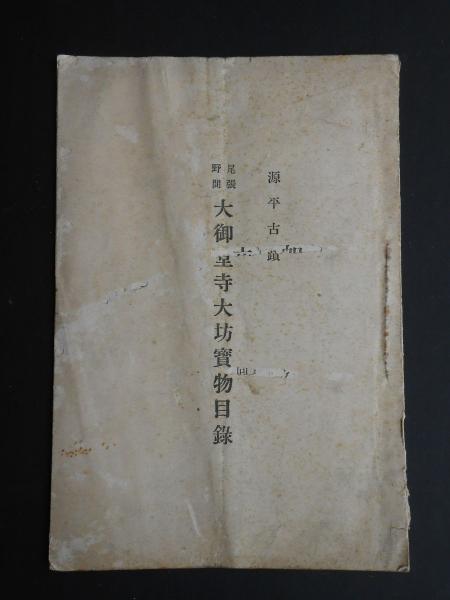 源平古蹟
尾張
野間
大御堂寺大坊寶物目錄